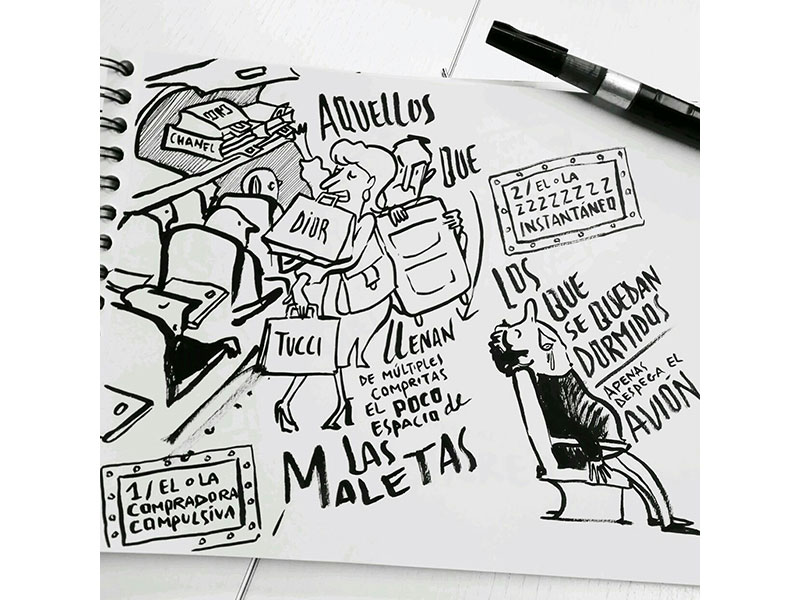 CHANEL
DIOR
TUCCI
AQUELLOS
QUE
LLENAN
DE MÚLTIPLES
COMPRITAS
EL POCO
ESPACIO de
LAS
MALETAS
1/EL o LA
COMPRADORA
COMPULSIVA
2/EL o LA
ZZZZZZZZ
INSTANTÁNEO
LOS QUE
SE QUEDAN
DORMIDOS
APENAS
DESPEGA EL
AVIÓN